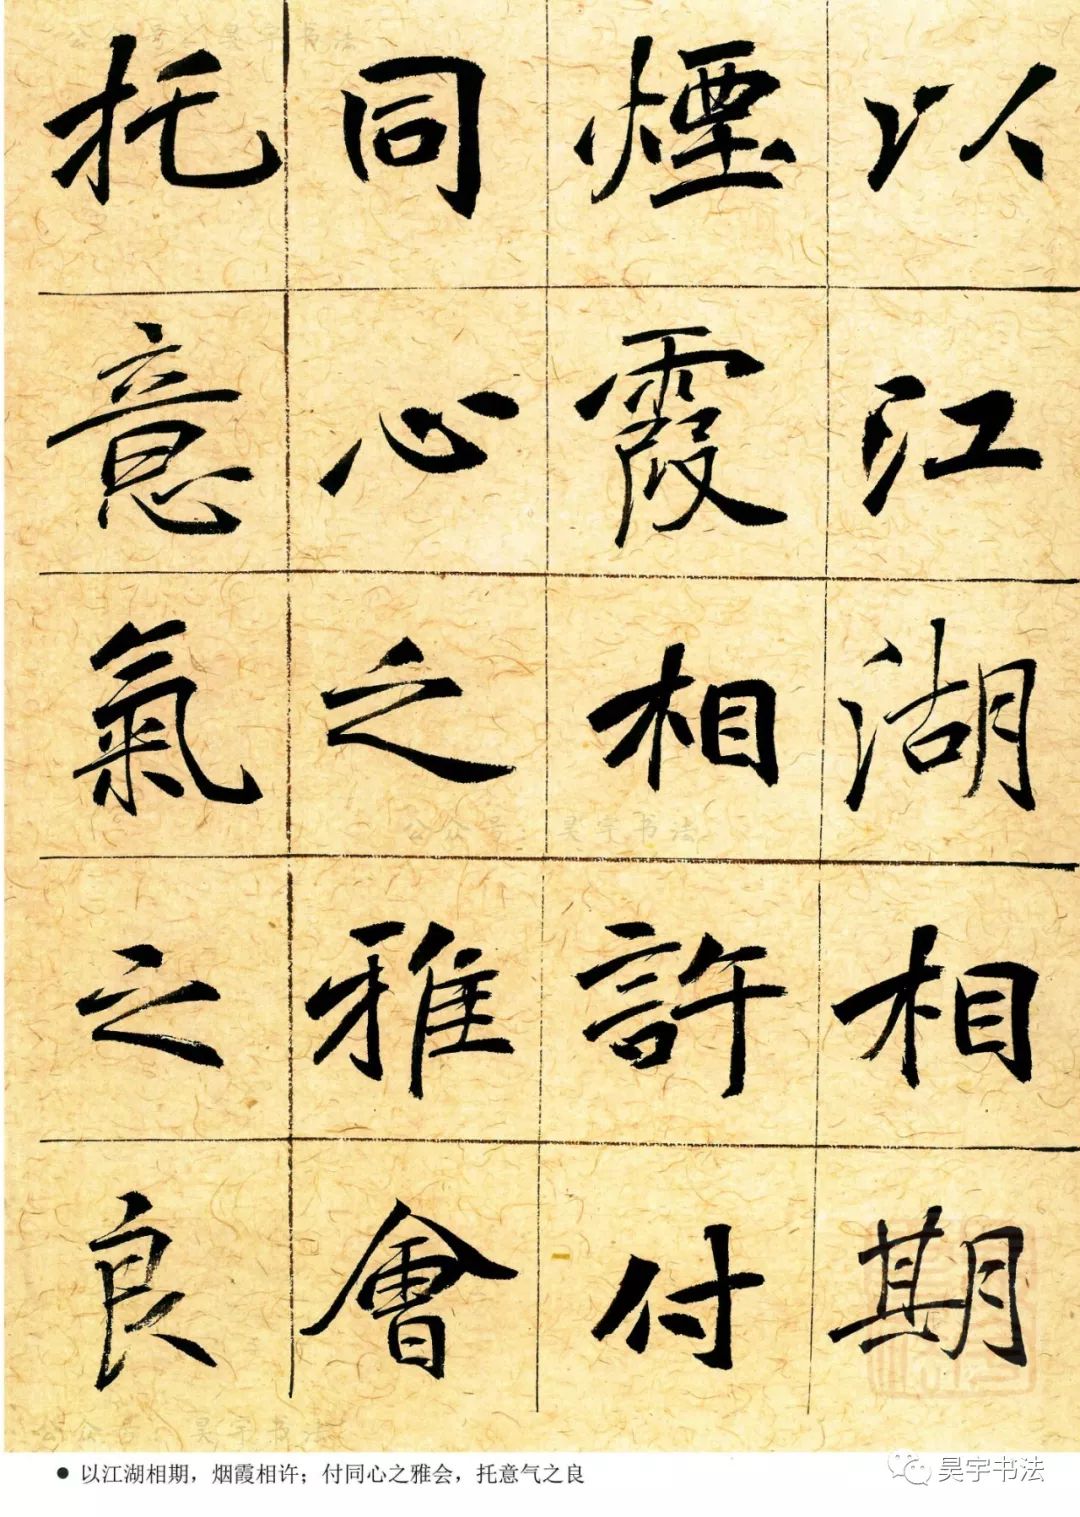 以江湖相期
煙霞相許付
同心之雅會
托意氣之良
公众号：昊宇书法
公众号：昊宇书法
公众号：昊宇书法
● 以江湖相期，烟霞相许；付同心之雅会，托意气之良
昊宇书法